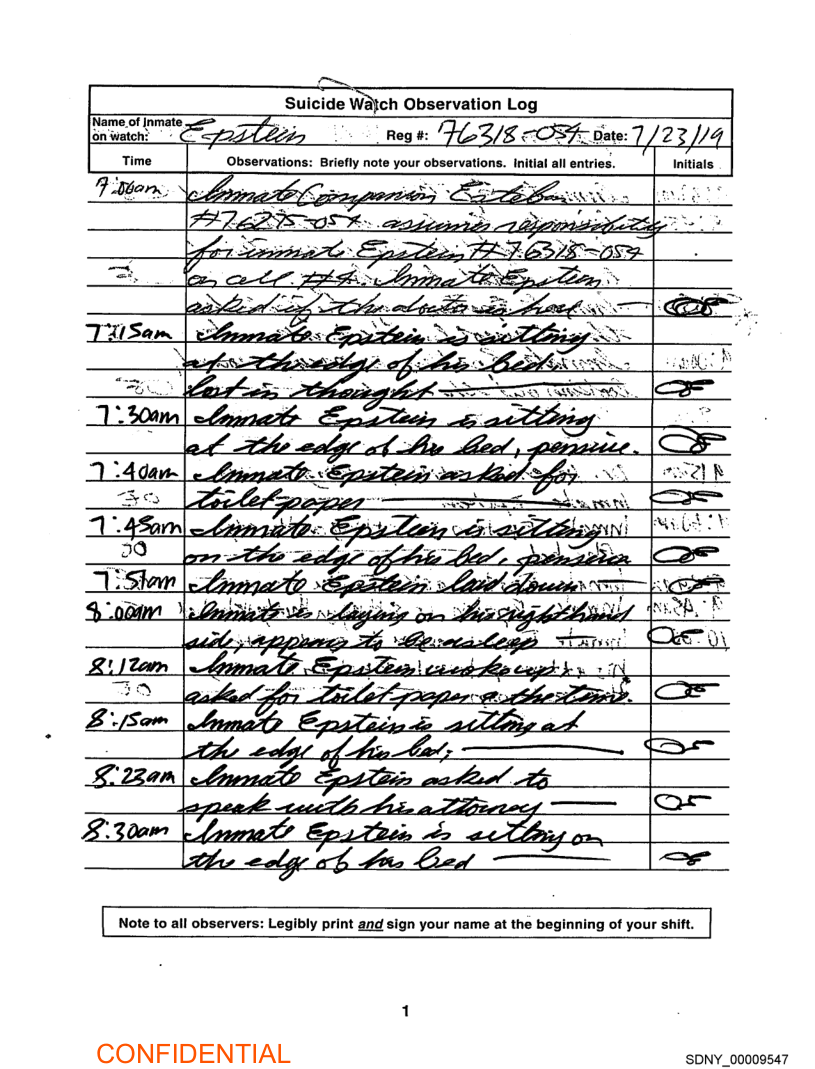 Suicide Watch Observation Log
Name of Inmate on watch: Epstein Reg #: 76318-054 Date: 7/23/19
Time Observations: Briefly note your observations. Initial all entries. Initials
7:06am Inmate Companion Esteban
#76275-054 assumes responsibility
for inmate Epstein #76318-054
on cell #4. Inmate Epstein
asked if the doctor is here
7:15am Inmate Epstein is sitting
at the edge of his bed
lost in thought
7:30am Inmate Epstein is sitting
at the edge of his bed, pensive.
7:40am Inmate Epstein asked for
toilet-paper
7:45am Inmate Epstein is sitting
on the edge of his bed, pensive
7:51am Inmate Epstein laid down
8:00am Inmate is laying on his right hand
side, appears to be asleep
8:12am Inmate Epstein woke up,
asked for toilet-paper @ the time.
8:15am Inmate Epstein is sitting at
the edge of his bed;
8:23am Inmate Epstein asked to
speak with his attorney
8:30am Inmate Epstein is sitting on
the edge of his bed
Note to all observers: Legibly print and sign your name at the beginning of your shift.
1
CONFIDENTIAL
SDNY_00009547